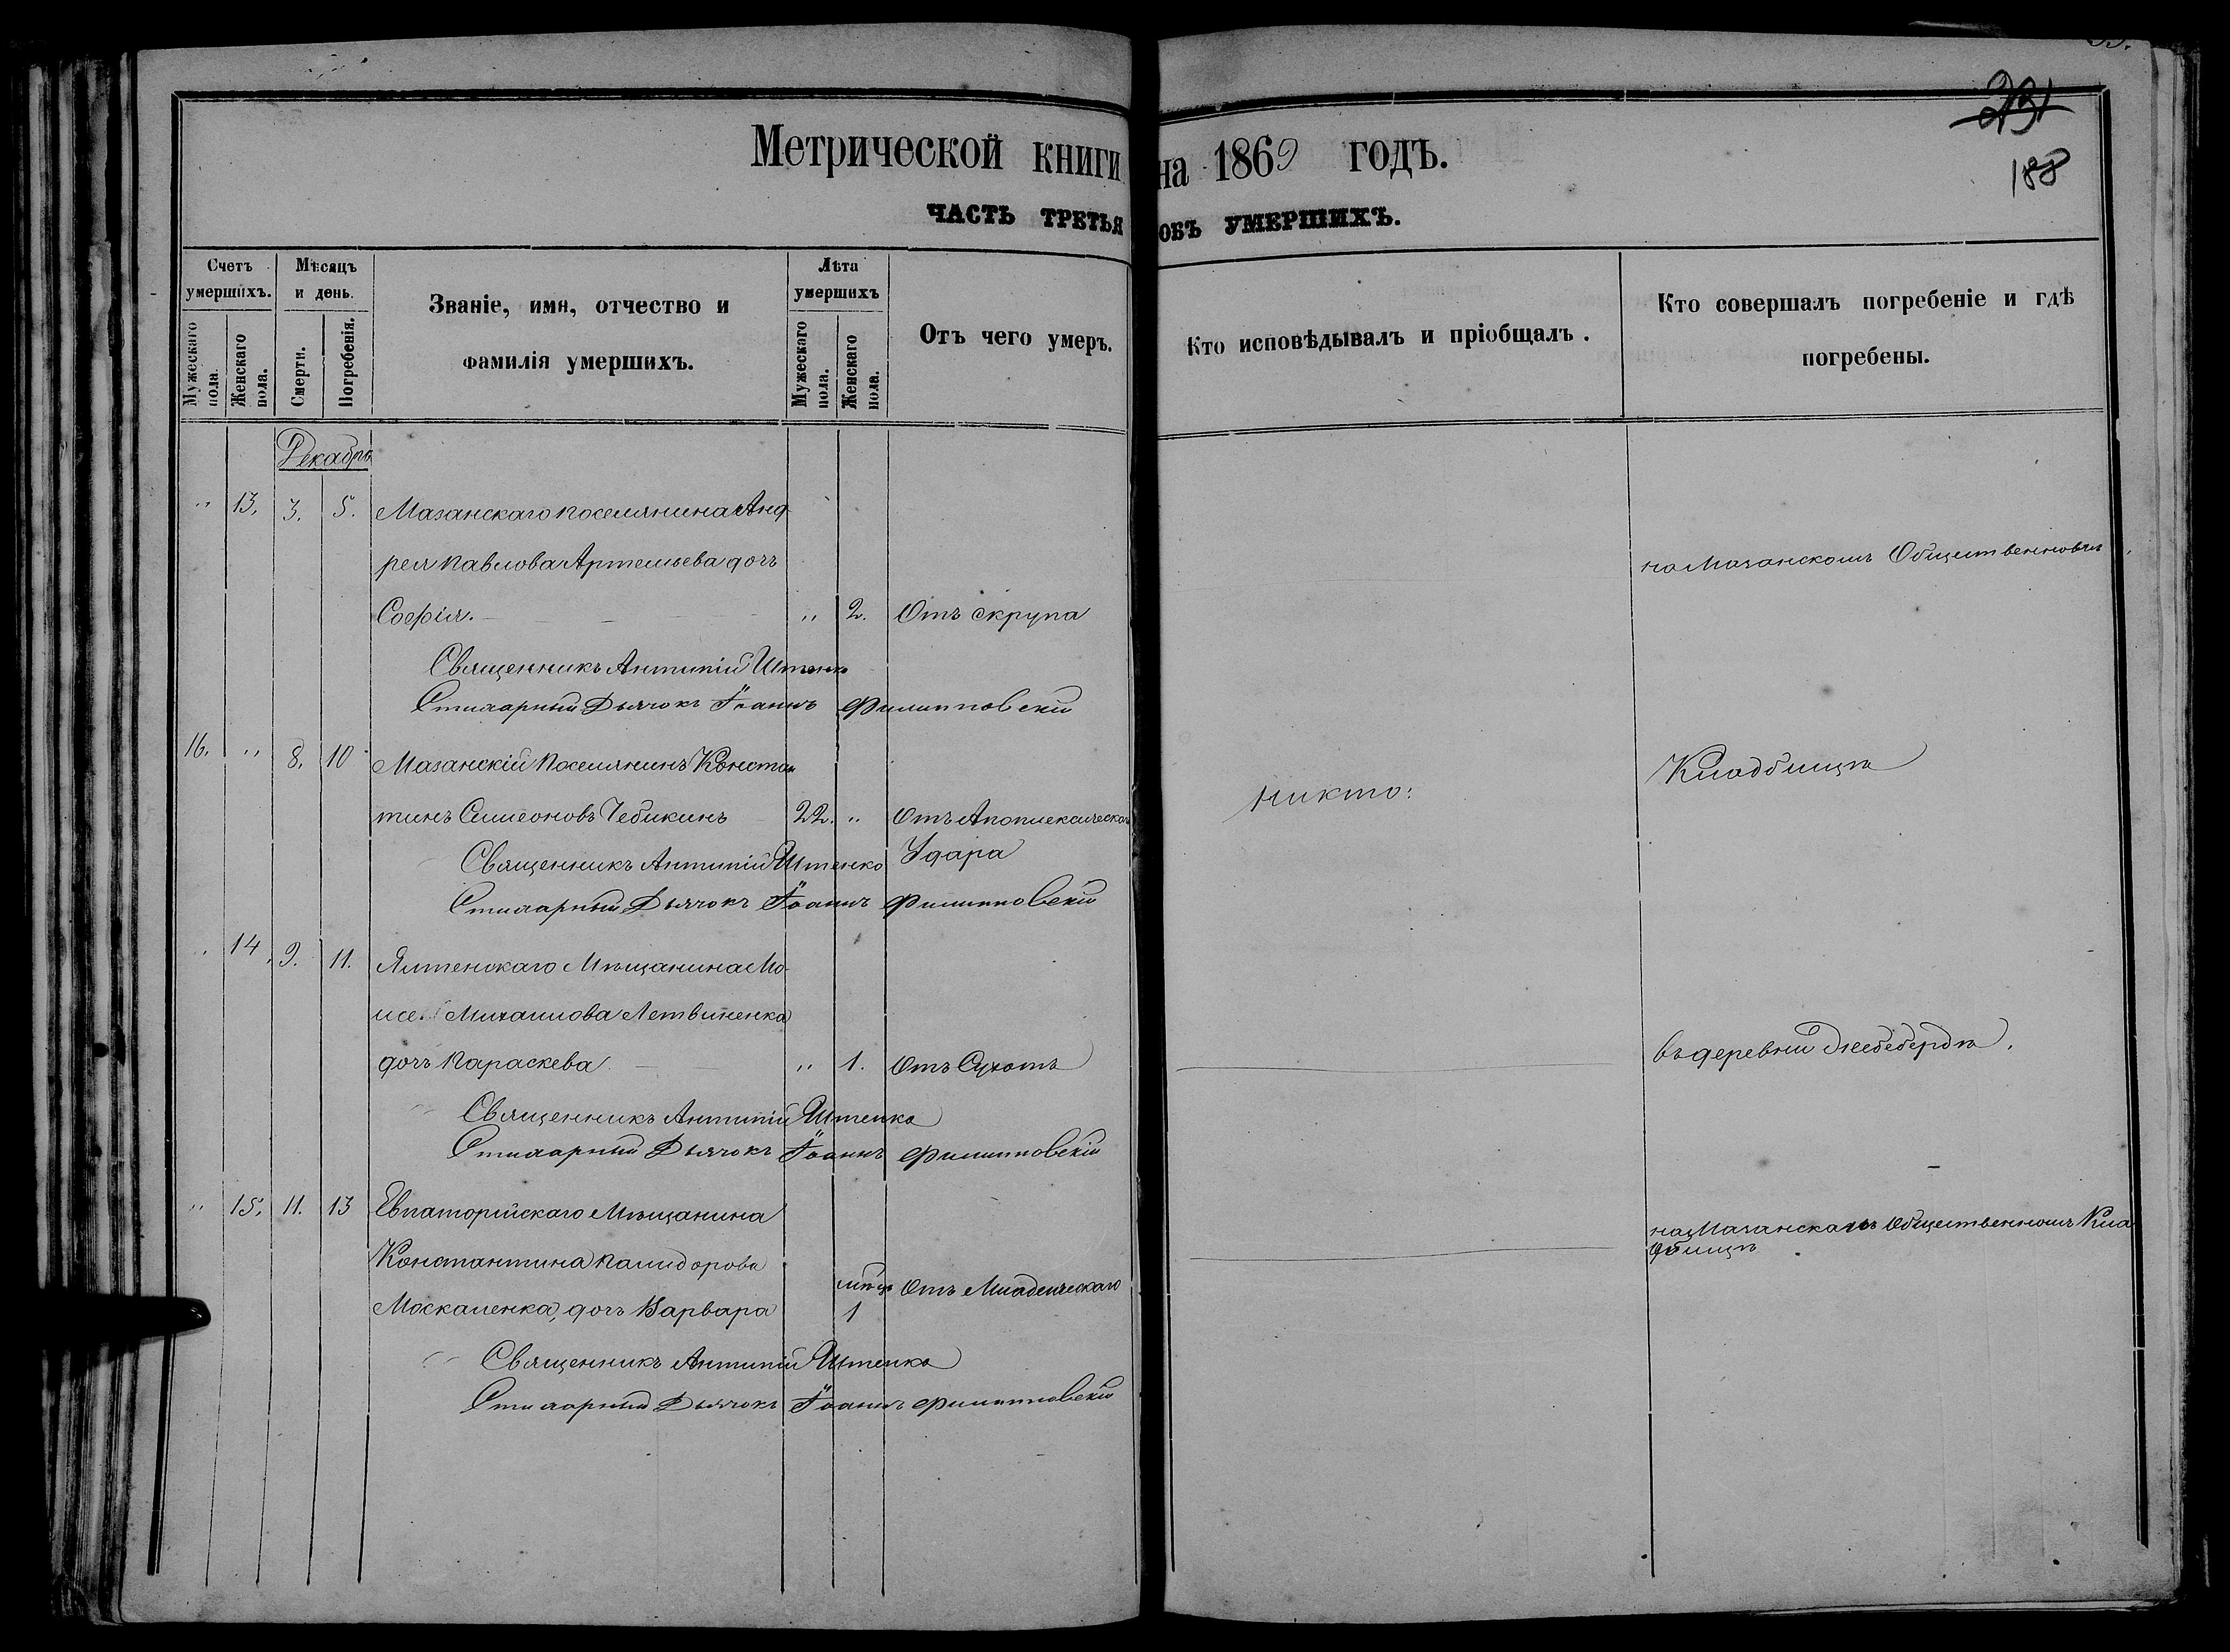 231
188
Метрической книги на 1869 годъ.
ЧАСТЬ ТРЕТЬЯ ОБЪ УМЕРШИХЪ.
Счетъ умершихъ.
Мужескаго пола.
Женскаго пола.
Мѣсяцъ и день.
Смерти.
Погребенія.
Званіе, имя, отчество и
фамилія умершихъ.
Лѣта умершихъ
Мужескаго пола.
Женскаго пола.
Отъ чего умеръ.
Кто исповѣдывалъ и пріобщалъ.
Кто совершалъ погребеніе и гдѣ
погребены.
Декабрь
" 13. 3. 5. Мазанскаго поселянина Анд
рея Павлова Артемьева дочь
на Мазанскомъ Общественновъ
Софія. " 2. Отъ скрупа
Священникъ Антипій Штенко
Стихарный Дьячокъ Іоаннъ Филипповскій
16. " 8. 10 Мазанскій поселянинъ Констан
Кладбищѣ
тинъ Симеоновъ Чебикинъ 22. " Отъ Апоплексическаго
никто:
Удара
Священникъ Антипій Штенко
Стихарный Дьячокъ Іоаннъ Филипповскій
" 14. 9. 11. Ялтенскаго Мѣщанина Мо-
исея Михаилова Летвиненка
дочь Параскева " 1. Отъ Сухотъ
въ деревни
Священникъ Антипій Штенко
Стихарный Дьячокъ Іоаннъ Филипповскій
" 15. 11. 13 Евпаторійскаго Мѣщанина
на Мазанскомъ Общественномъ Кла
дбищѣ
Константина Памидорова
Москаленка, дочь Варвара мѣсяц 1 Отъ Младенческаго
Священникъ Антипій Штенко
Стихарный Дьячокъ Іоаннъ Филипповскій